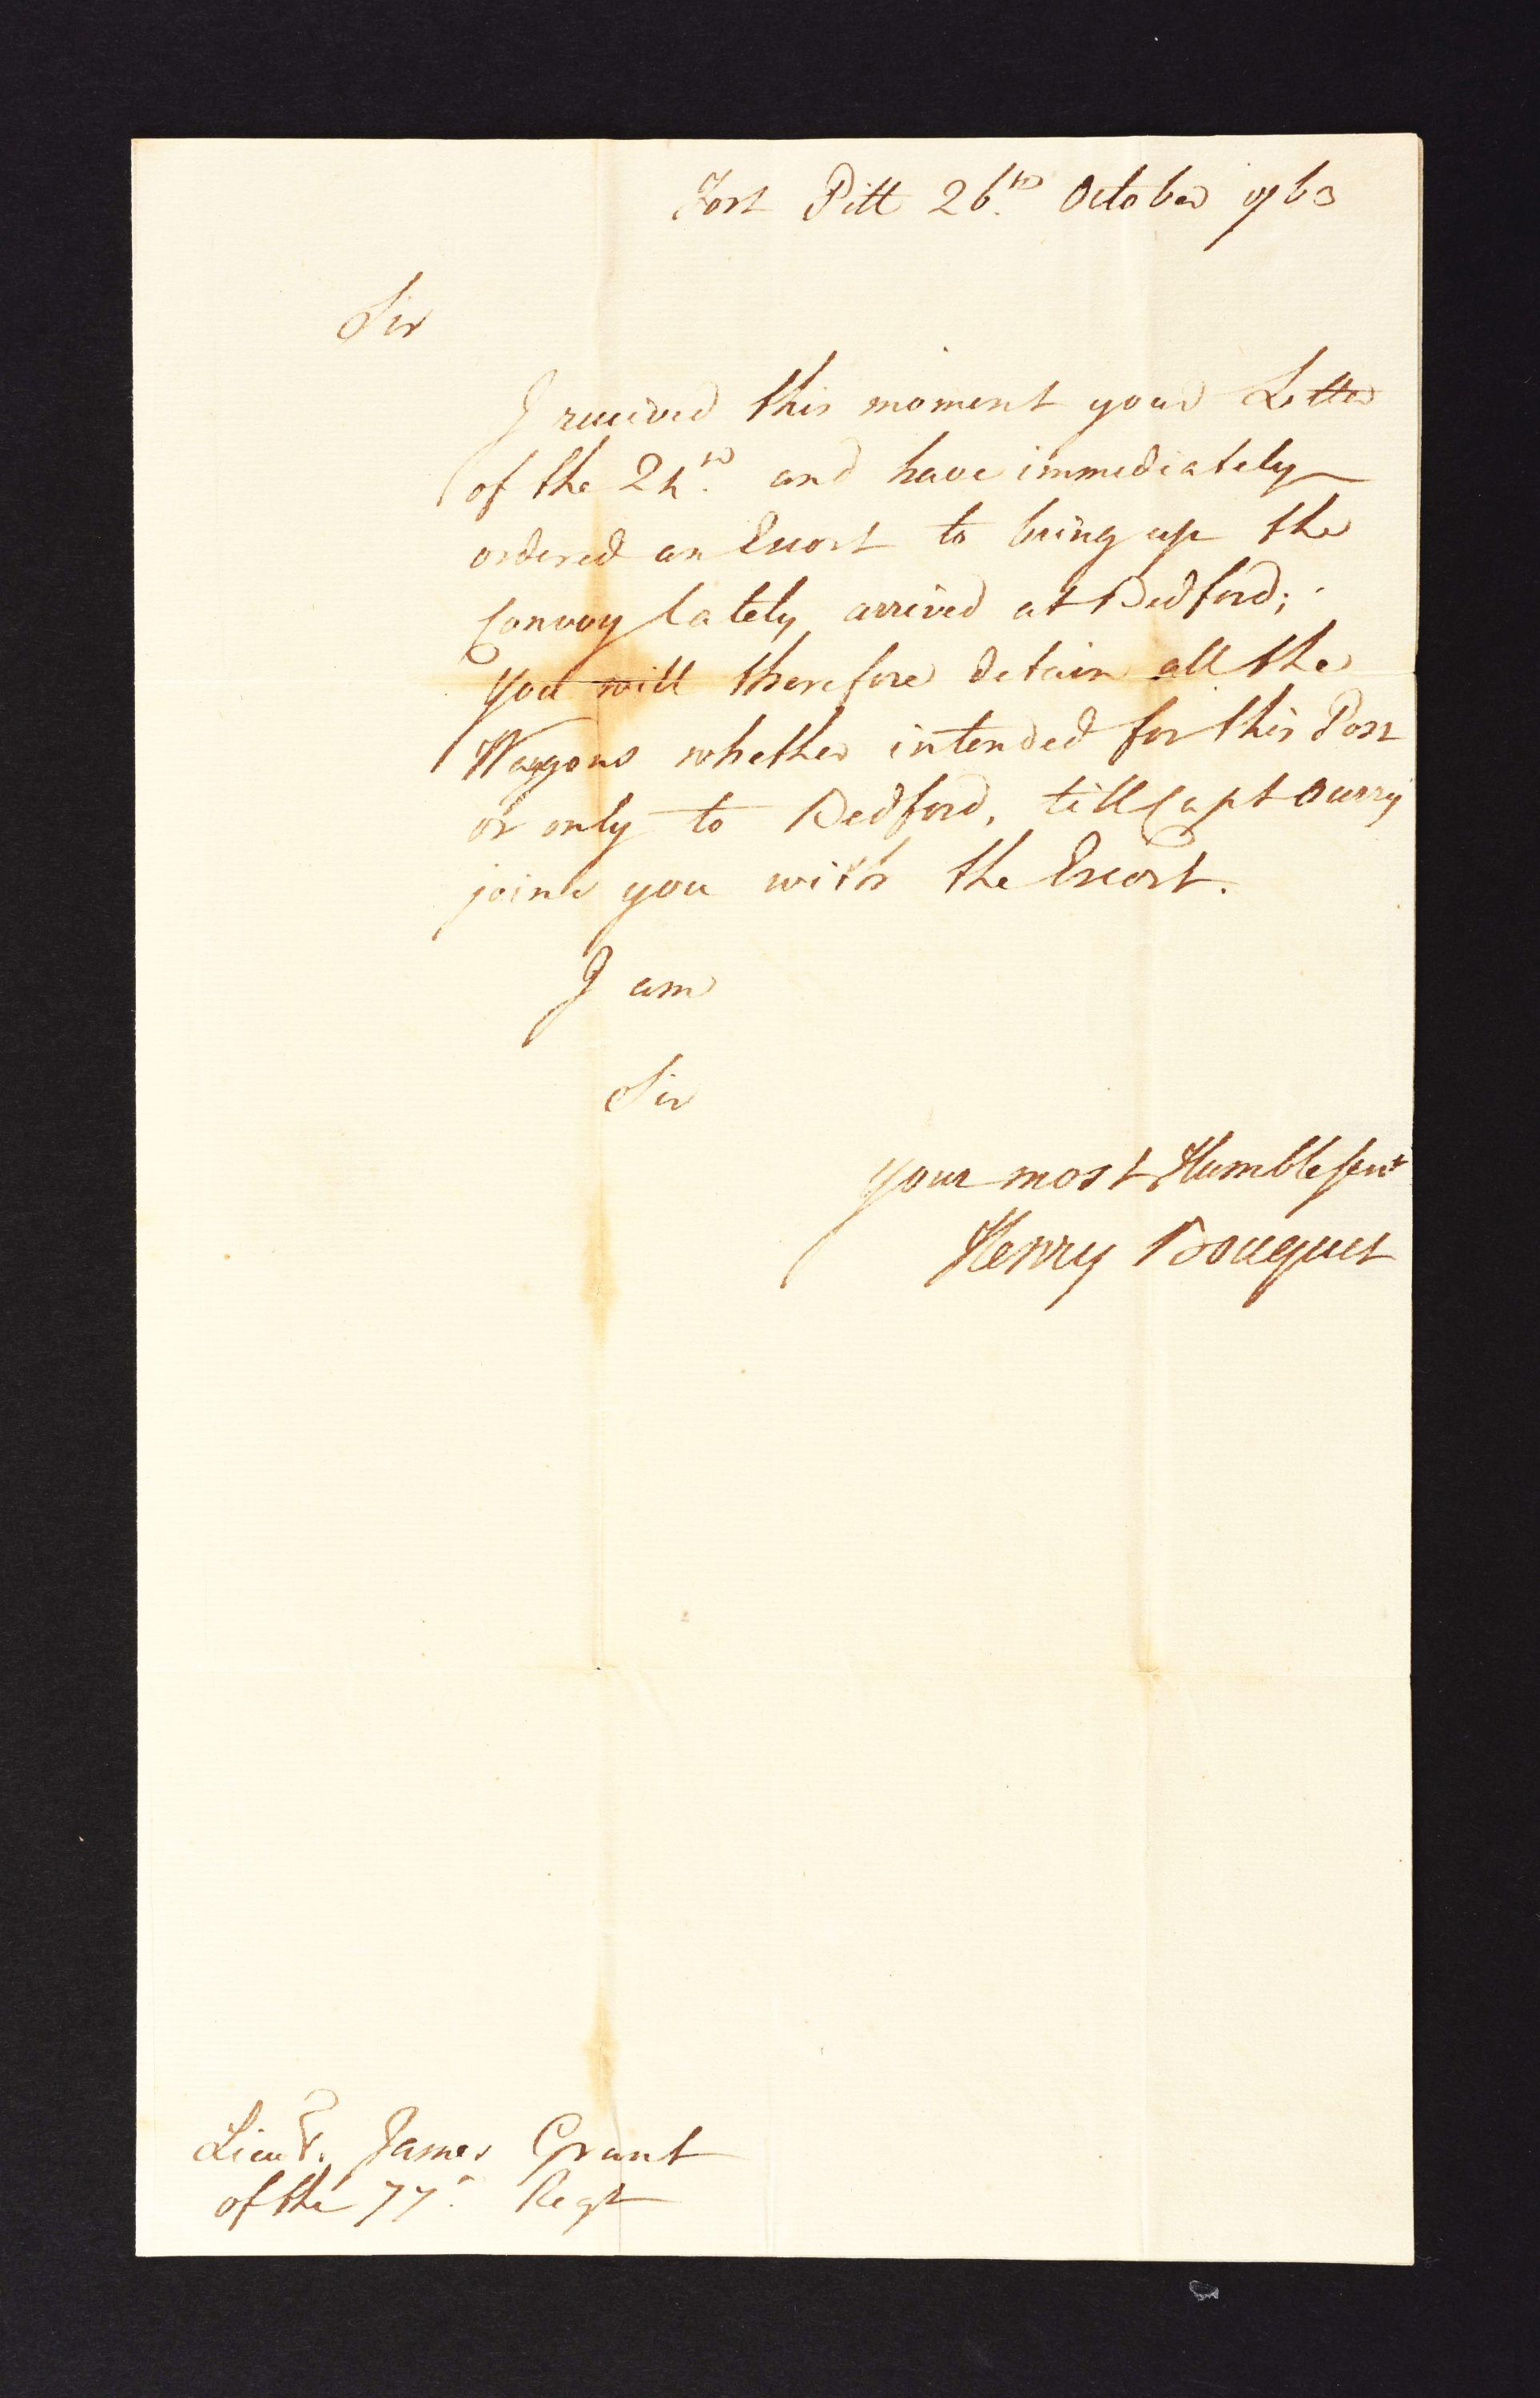 Fort Pitt 26.th October 1763
Sir
I received this moment your Letter
of the 24.th and have immediately
ordered an Escort to bring up the
Convoy lately arrived at Bedford;
You will therefore detain all the
Waggons whether intended for this Post
or only to Bedford, till Capt Ourry
joins you with the Escort.
I am
Sir
your most Humble servt
Henry Bouquet
Lieut. James Grant
of the 77. Regt